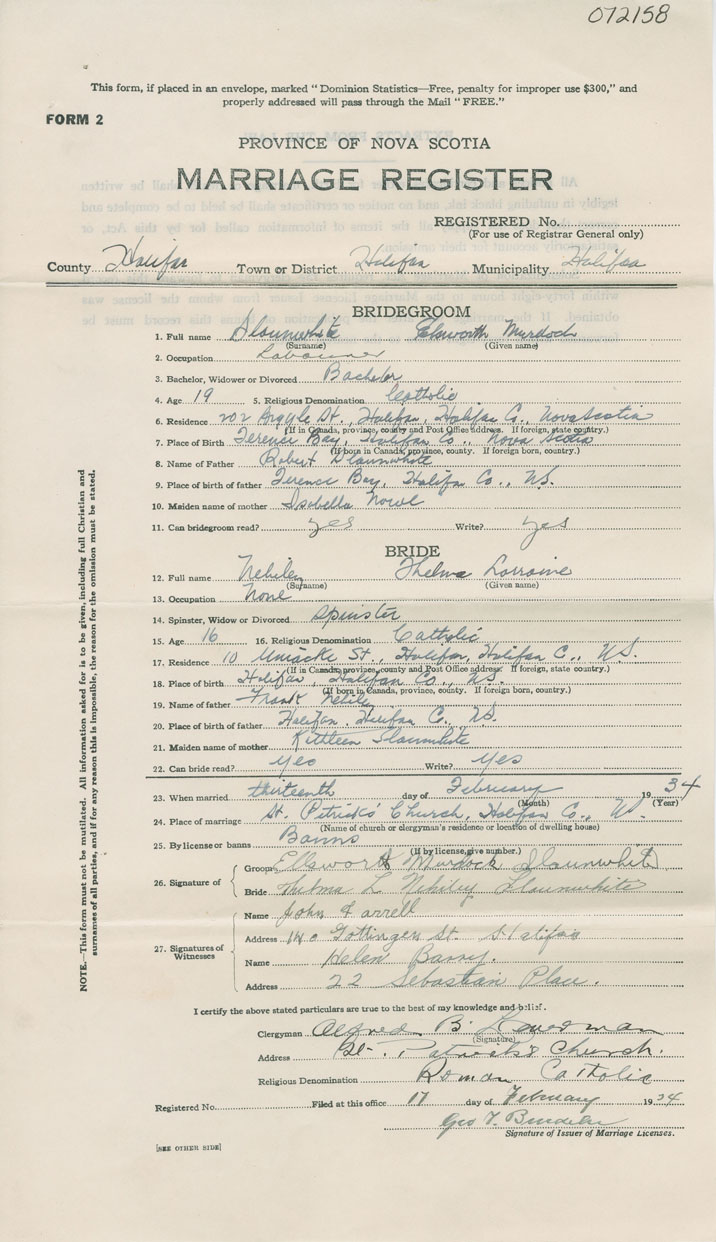 072158
This form, if placed in an envelope, marked "Dominion Statistics—Free, penalty for improper use $300," and
properly addressed will pass through the Mail "FREE."
FORM 2
PROVINCE OF NOVA SCOTIA
MARRIAGE REGISTER
REGISTERED No.
(For use of Registrar General only)
County Halifax Town or District Halifax Municipality Halifax
BRIDEGROOM
1. Full name Slaunwhite Elsworth Murdoch
(Surname) (Given name)
2. Occupation Labourer
3. Bachelor, Widower or Divorced Bachelor
4. Age 19 5. Religious Denomination Catholic
6. Residence 202 Argyle St., Halifax, Halifax Co., Nova Scotia
(If in Canada, province, county and Post Office address. If foreign, state country.)
7. Place of Birth Terense Bay, Halifax Co., Nova Scotia
(If born in Canada, province, county. If foreign born, country.)
8. Name of Father Robert Slaunwhite
9. Place of birth of father Terense Bay, Halifax Co., N.S.
10. Maiden name of mother Isabella
11. Can bridegroom read? yes Write? yes
BRIDE
12. Full name Thelma Lorraine
(Surname) (Given name)
13. Occupation None
14. Spinster, Widow or Divorced Spinster
15. Age 16 16. Religious Denomination Catholic
17. Residence 10 Uniacke St., Halifax, Halifax C., N.S.
(If in Canada, province, county and Post Office address. If foreign, state country.)
18. Place of birth Halifax, Halifax Co., N.S.
(If born in Canada, province, county. If foreign born, country.)
19. Name of father Frank
20. Place of birth of father Halifax. Halifax C., N.S.
21. Maiden name of mother Kathleen Slaunwhite
22. Can bride read? yes Write? yes
23. When married thirteenth day of February 1934
(Month) (Year)
24. Place of marriage St. Patrick's Church, Halifax Co., N.S.
(Name of church or clergyman's residence or location of dwelling house)
25. By license or banns Banns
(If by license, give number.)
26. Signature of
Groom Ellsworth Murdock Slaunwhite
Bride Thelma L Slaunwhite
27. Signatures of Witnesses
Name John Farrell
Address Gottingen St. Halifax
Name Helen Barry.
Address 22 Sebastian Place.
I certify the above stated particulars are true to the best of my knowledge and belief.
Clergyman Alfred B.
(Signature)
Address St. Patrick's Church.
Religious Denomination Roman Catholic
Registered No. Filed at this office 17 day of February 1934
Geo
Signature of Issuer of Marriage Licenses.
[SEE OTHER SIDE]
NOTE.—This form must not be mutilated. All information asked for is to be given, including full Christian and
surnames of all parties, and if for any reason this is impossible, the reason for the omission must be stated.